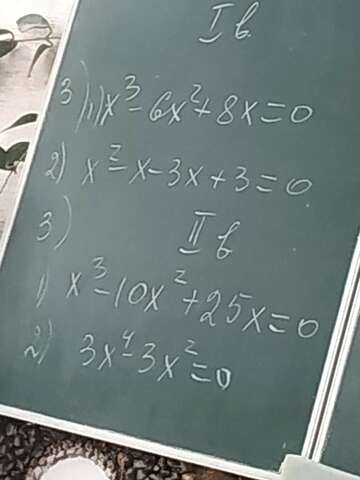 I в.
3) 1) x³-6x²+8x=0
2) x²-x-3x+3=0
3) II в
1) x³-10x²+25x=0
2) 3x⁴-3x²=0